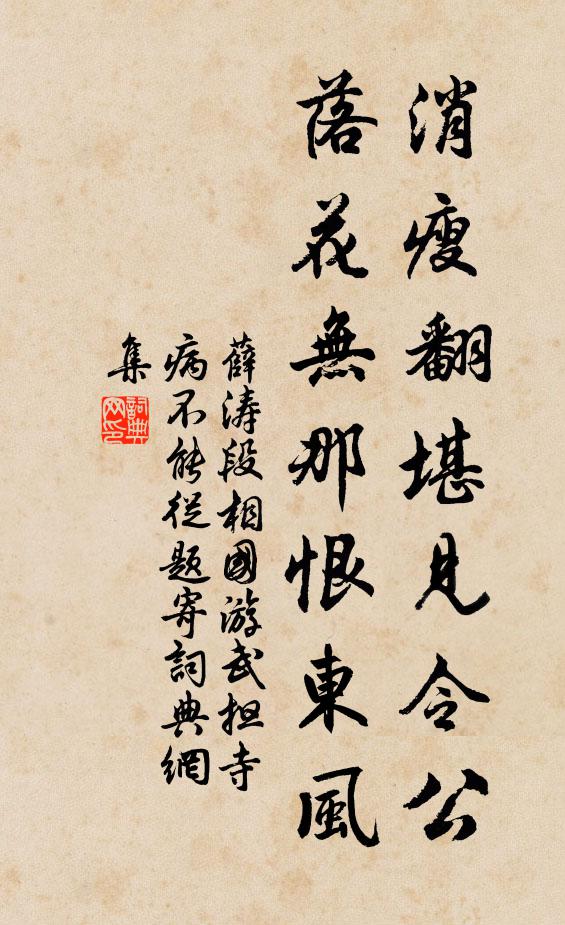 消瘦翻堪見令公
落花無那恨東風
薛濤段相國游武担寺
病不能從題寄詞典網
集
詞典網印